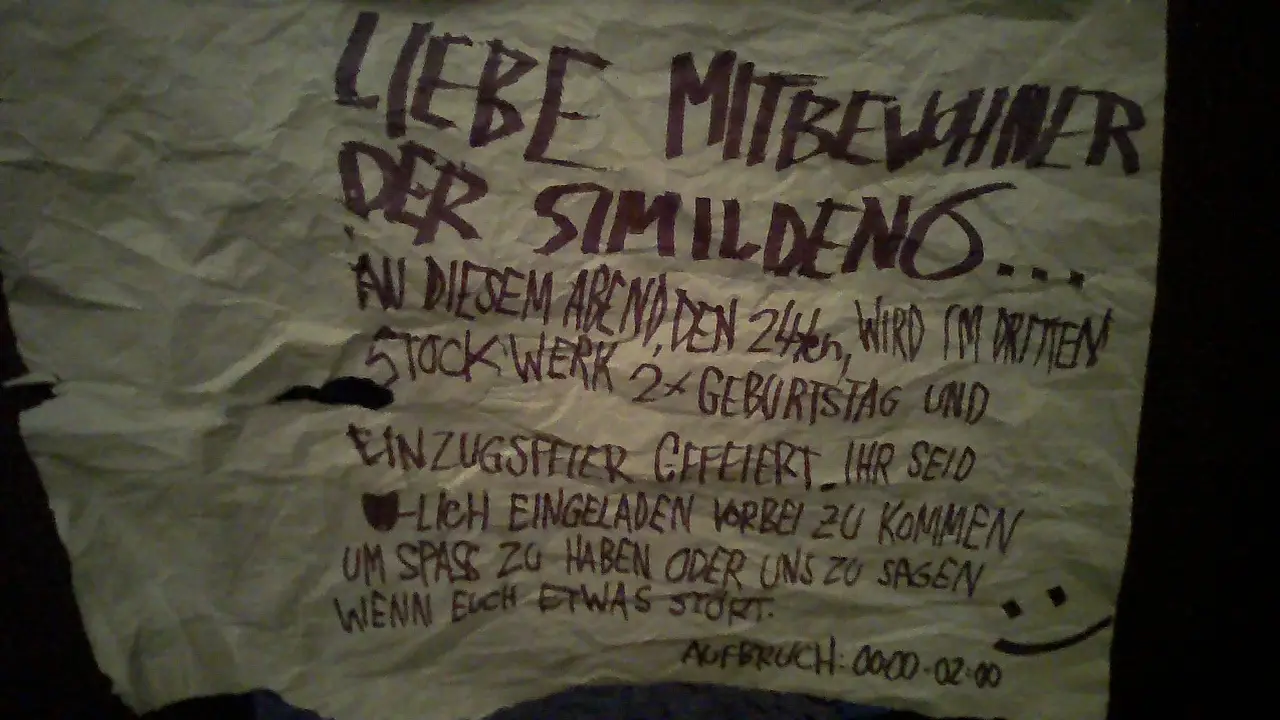 LIEBE MITBEWOHNER
DER SIMILDEN6...
AN DIESEM ABEND, DEN 24ten, WIRD IM DRITTEN
STOCKWERK 2x GEBURTSTAG UND
EINZUGSFEIER GEFEIERT. IHR SEID
♥-LICH EINGELADEN VORBEI ZU KOMMEN
UM SPASS ZU HABEN ODER UNS ZU SAGEN
WENN EUCH ETWAS STÖRT.
AUFBRUCH: 00:00-02:00